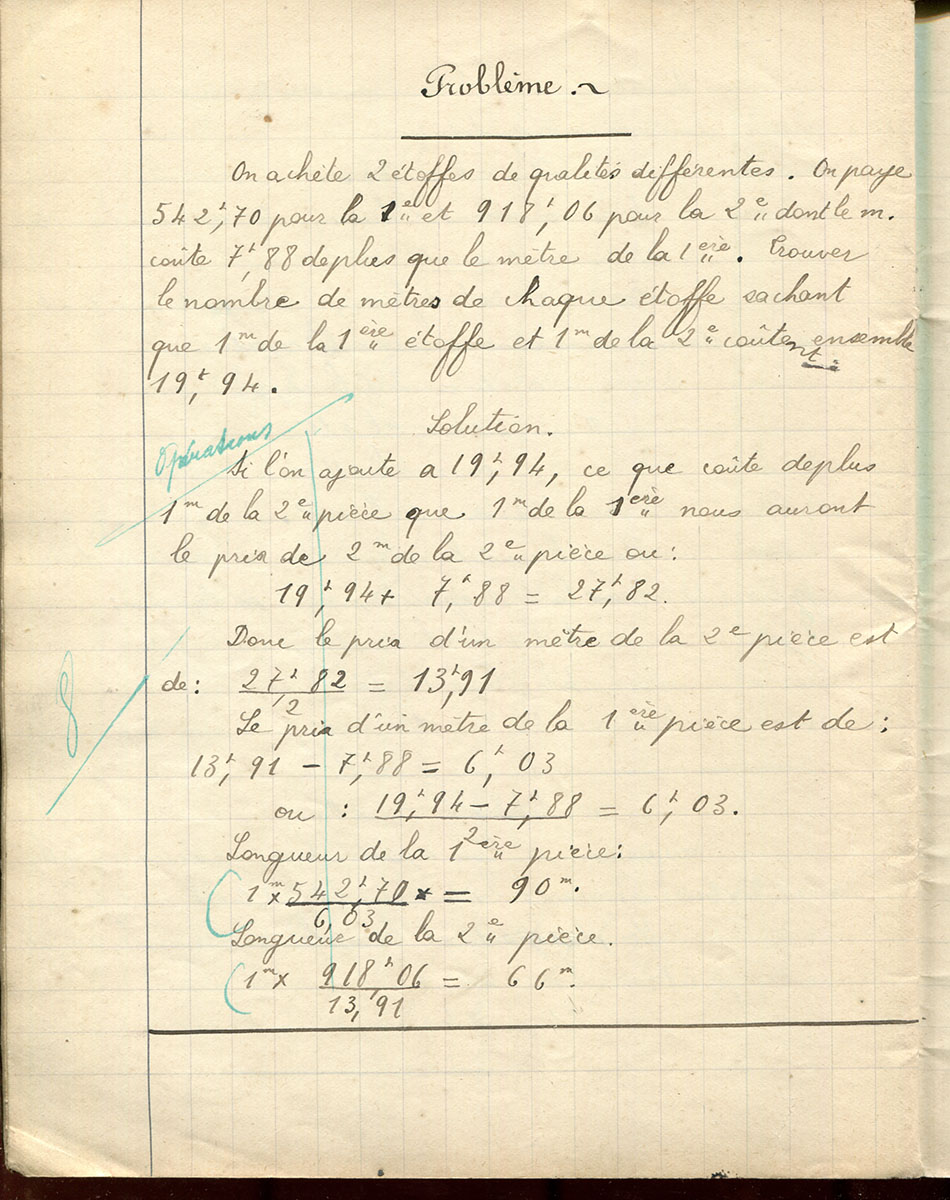 Problème. ~
On achète 2 étoffes de qualités différentes. On paye
542f,70 pour la 1e et 918f,06 pour la 2e dont le m.
coûte 7f,88 de plus que le mètre de la 1ère. Trouver
le nombre de mètres de chaque étoffe sachant
que 1m de la 1ère étoffe et 1m de la 2e coûtent ensemble
19f,94.
Solution.
Opérations
Si l'on ajoute a 19f,94, ce que coûte de plus
1m de la 2e pièce que 1m de la 1ère nous auront
le prix de 2m de la 2e pièce ou:
19f,94 + 7f,88 = 27f,82.
Donc le prix d'un mètre de la 2e pièce est
de: 27f,82 = 13f,91
2
Le prix d'un mètre de la 1ère pièce est de:
8
13f,91 – 7f,88 = 6f,03
ou : 19f,94 – 7f,88 = 6f,03.
2
Longueur de la 1ère pièce:
1m × 542f,70 × = 90m.
6,03
Longueur de la 2e pièce.
1m × 918f,06 = 66m.
13,91